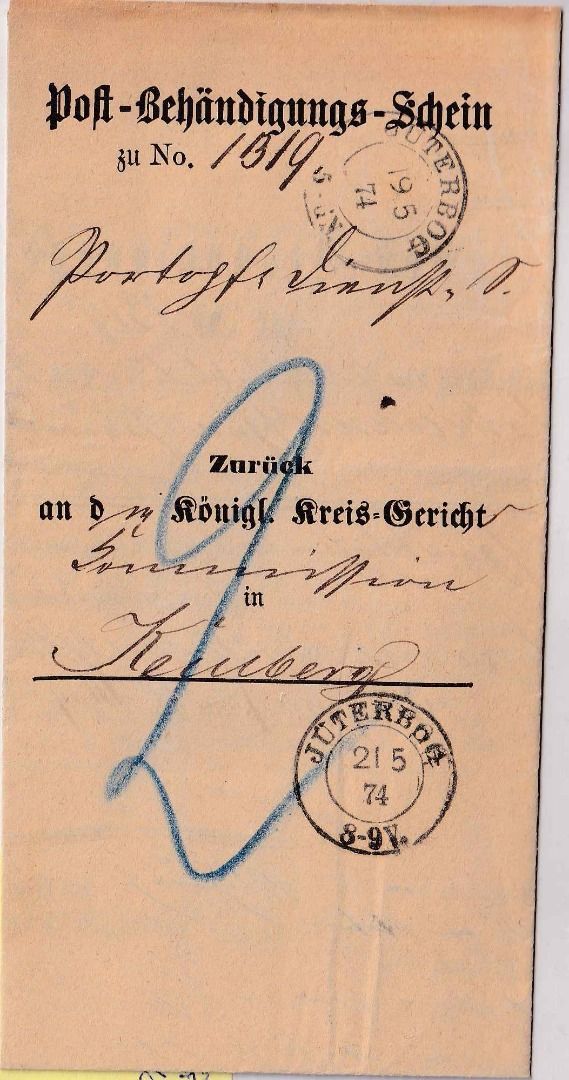 Post-Behändigungs-Schein
zu No. 1519.
JÜTERBOG
19 5
74
Portopfl. Dienst. S.
2
Zurück
an d ie Königl. Kreis-Gerichts
Commission
in
Kemberg
JÜTERBOG
21 5
74
8-9V.